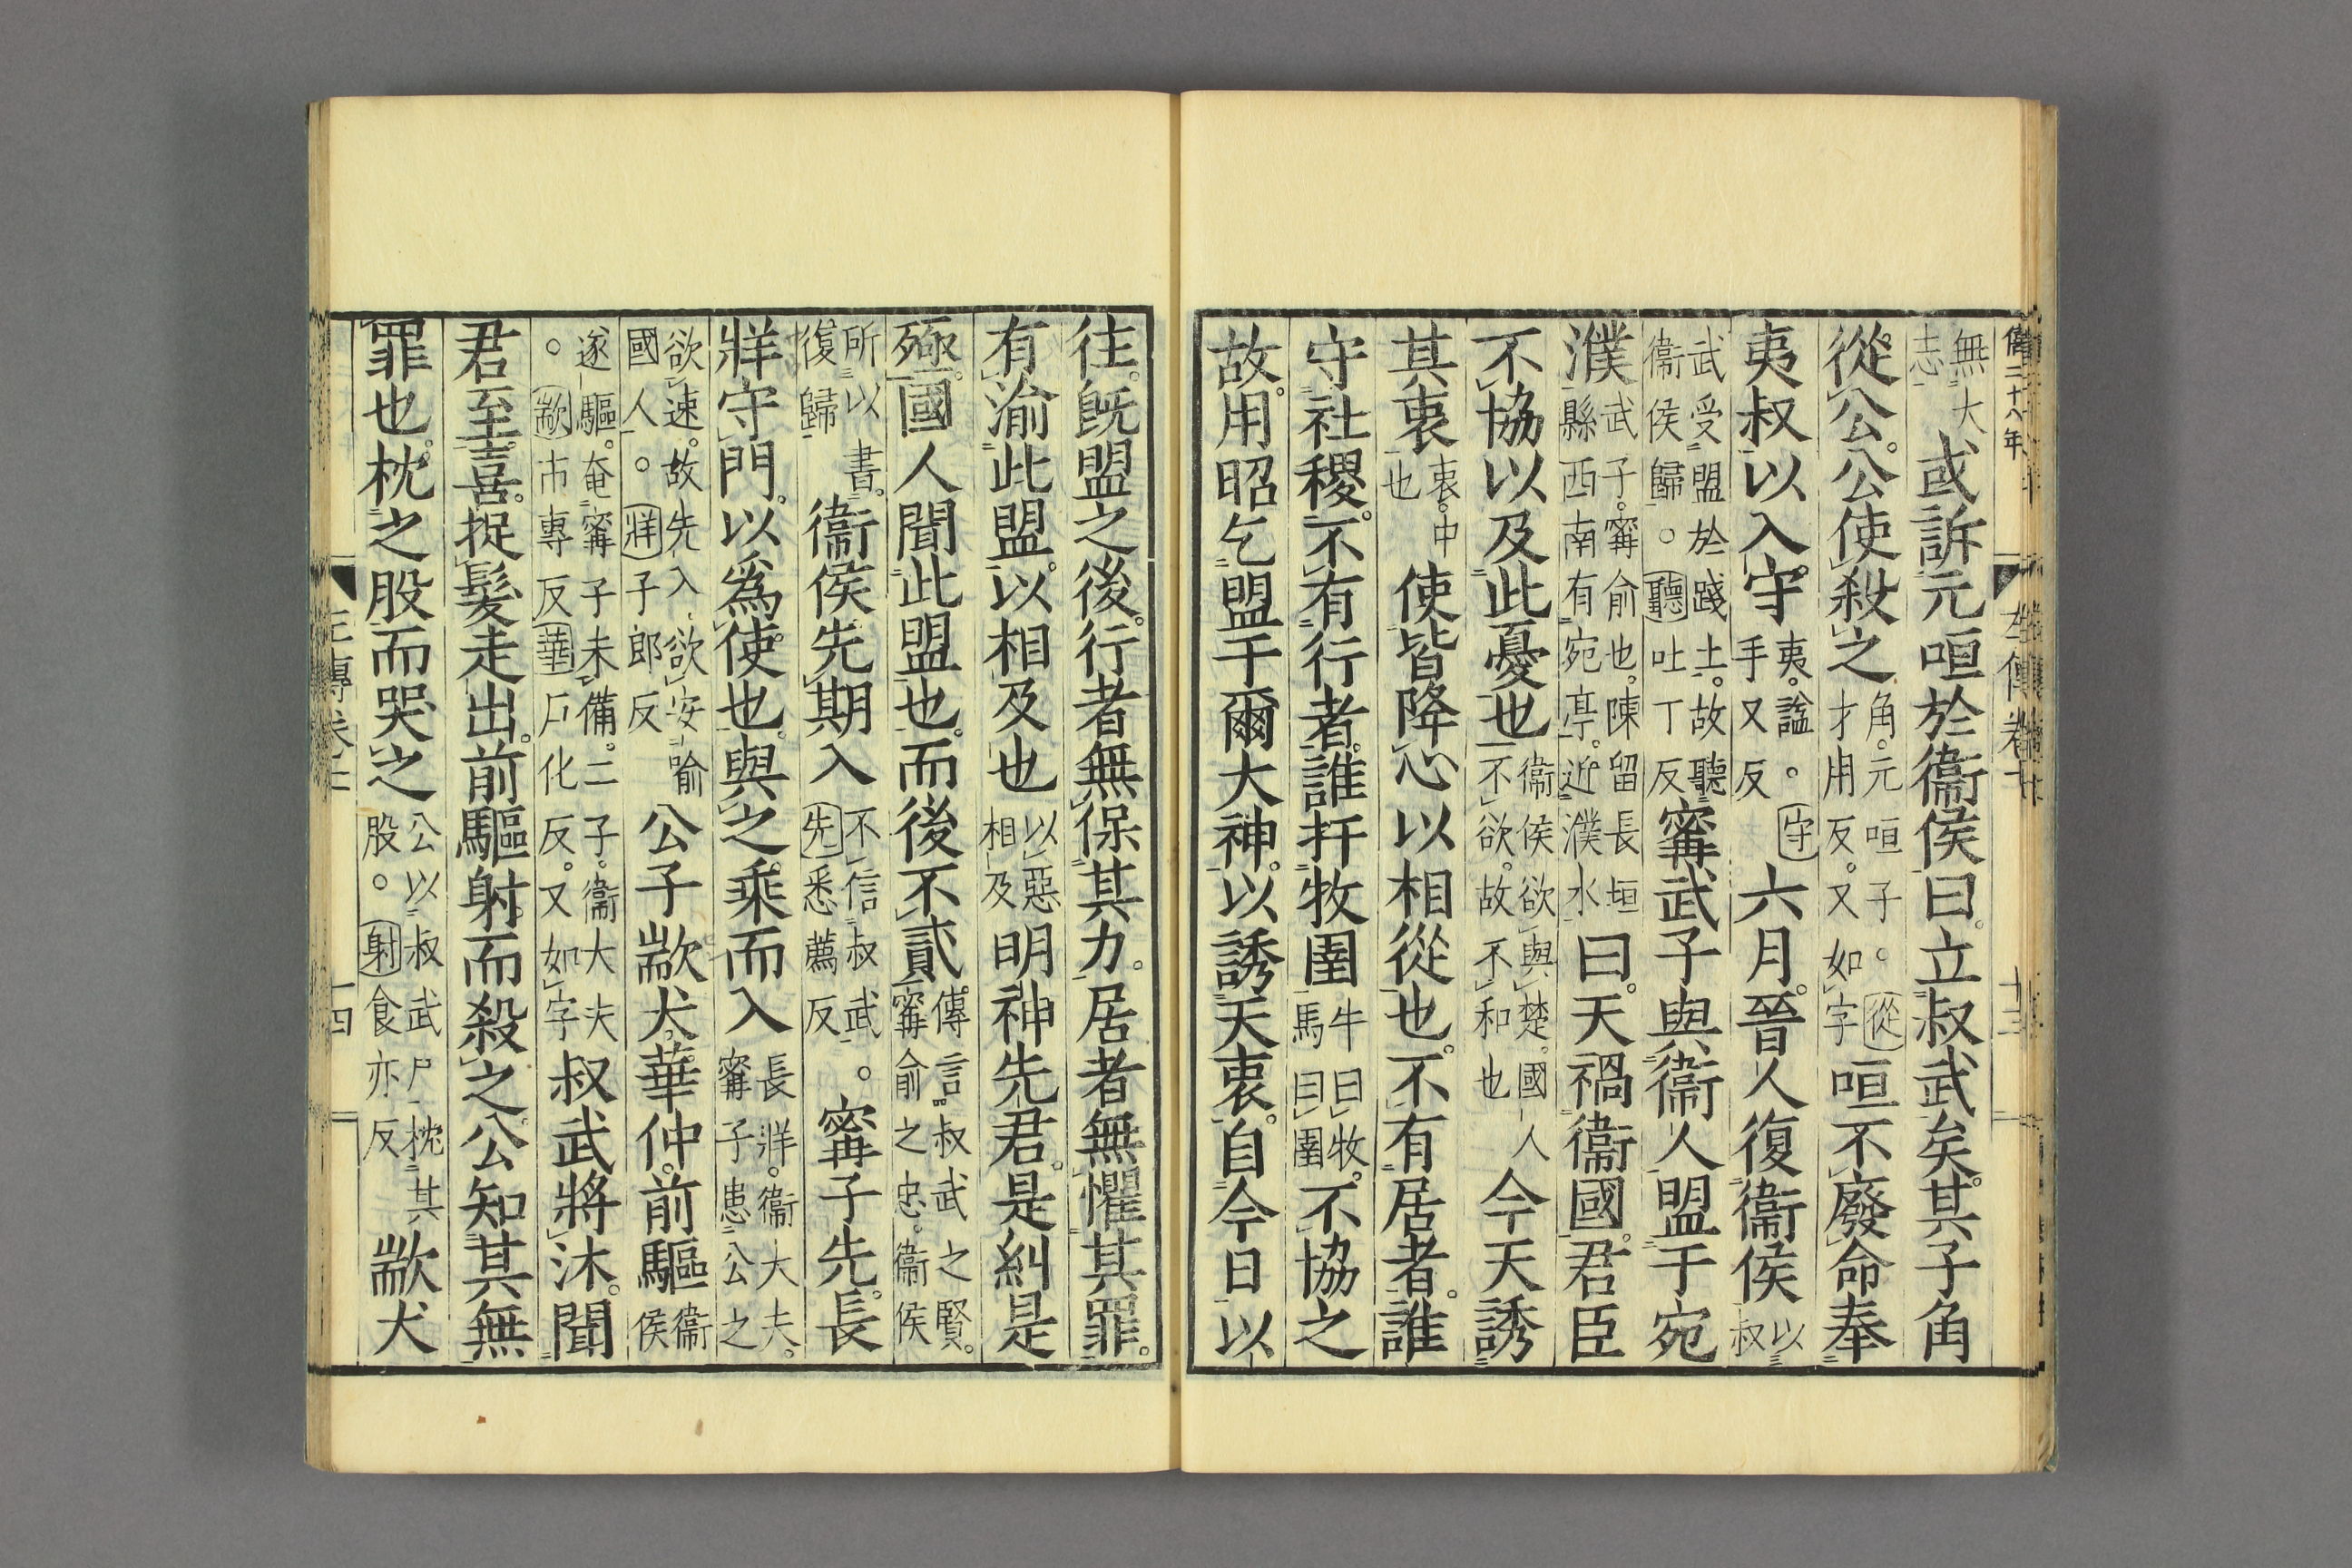 僖二十八年
左傳卷七
十三
無大志 或訴元咺於衞侯曰立叔武矣其子角
從公公使殺之 角元咺子。從才用反又如字 咺不廢命奉
夷叔以入守 夷諡。守手又反 六月晉人復衞侯 以叔
武受盟於踐土故聽衞侯歸。聽吐丁反 甯武子與衞人盟于宛
濮 武子甯俞也陳留長垣縣西南有宛亭近濮水 曰天禍衞國君臣
不協以及此憂也 衞侯欲與楚國人不欲故不和也 今天誘
其衷 衷中也 使皆降心以相從也不有居者誰
守社稷不有行者誰扞牧圉 牛曰牧馬曰圉 不協之
故用昭乞盟于爾大神以誘天衷自今日以
往旣盟之後行者無保其力居者無懼其罪
有渝此盟以相及也 以惡相及 明神先君是糾是
殛國人聞此盟也而後不貳 傳言叔武之賢甯俞之忠衞侯
所以書復歸 衞侯先期入 不信叔武。先悉薦反 甯子先長
牂守門以爲使也與之乘而入 長牂衞大夫甯子患公之
欲速故先入欲安喻國人。牂子郎反 公子歂犬華仲前驅 衞侯
遂驅奄甯子未備二子衞大夫。歂市專反華戶化反又如字 叔武將沐聞
君至喜捉髮走出前驅射而殺之公知其無
罪也枕之股而哭之 公以叔武尸枕其股。射食亦反 歂犬
十四